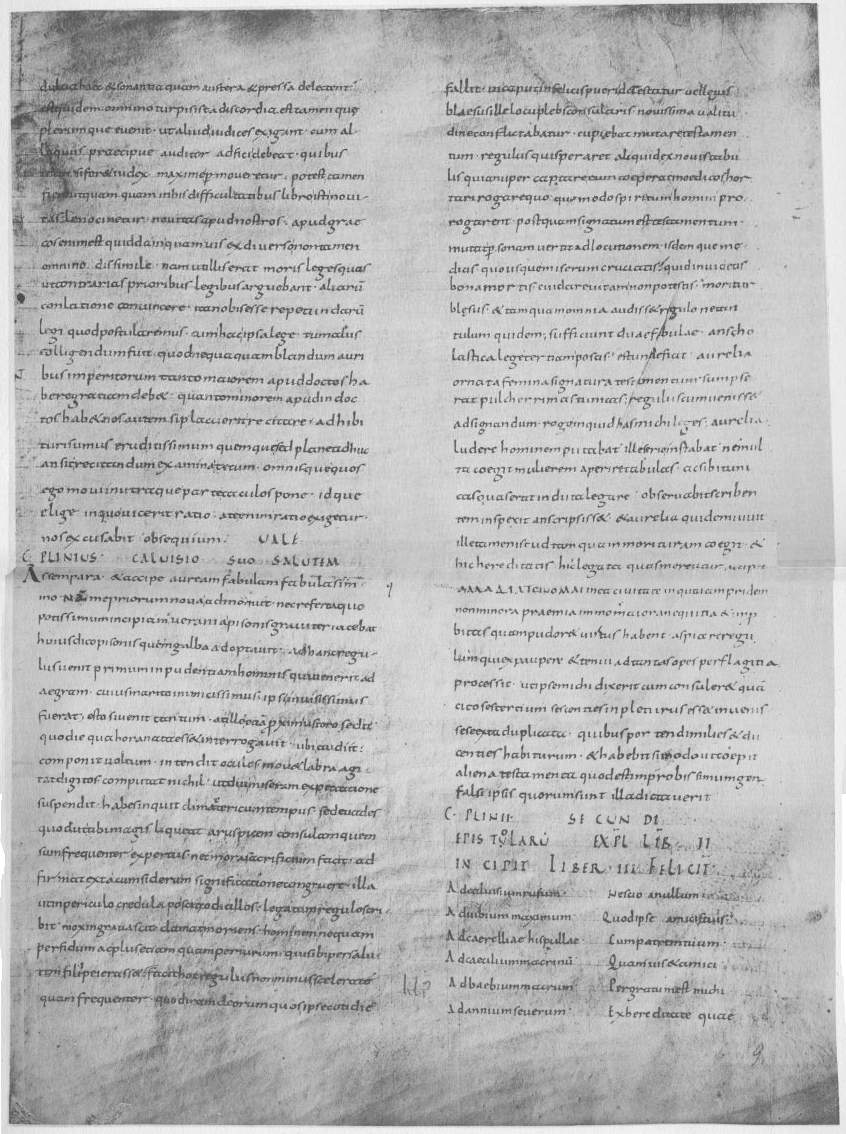 dulcia haec & sonantia quam austera & pressa delectent.
est quidem omnino turpis ista discordia. est tamen quę
plerumque evenit. ut aliud iudices exigant. cum al-
praecipue auditor adfici debeat. quibus
si foret iudex maxime moveretur. potest tamen
quam quam in his difficultatibus libro isti novi-
tas lenocinetur. novitas apud nostros. apud grae
cos enim est quiddam quamvis ex diverso non tamen
omnino dissimile. nam ut illis erat moris leges quas
ut contrarias prioribus legibus arguebant. aliarū
conlatione convincere. ita nobis esse repetundarū
legi quod postularemus. cum hac ipsa lege tum aliis
colligendum fuit. quod nequaquam blandum auri
bus imperitorum tanto maiorem apud doctos ha
bere gratiam deb&. quanto minorem apud indoc
tos hab& nos autem si placuerit recitare. adhibi
turi sumus eruditissimum quemque sed plane adhuc
an sit recitandum examina tecum. omnisque quos
ego movi in utraque parte calculos pone. idque
elige in quo vicerit ratio. a te enim ratio exigetur.
nos excusabit obsequium. VALE
C. PLINIUS. CALVISIO SUO SALUTEM
Assem para. & accipe auream fabulam fabulas im̄
mo me priorum nova admonuit. nec refert a quo
potissimum incipiam. verania pisonis graviter iacebat
huius dico pisonis quem galba adoptavit. ad hanc regu-
lus venit primum inpudentiam hominis qui venerit ad
aegram. cuius marito inimicissimus. ipsi invisissimus
fuerat, esto si venit tantum. at ille etiam proximus toro sedit
quo die qua hora nata esset interrogavit. ubi audiit:
componit voltum. intendit oculos mov& labra agi
tat digitos computat nichil. ut diu miseram expectatione
suspendit. habes inquit climactericum tempus sed evades
quod ut tibi magis liqueat aruspicem consulam quem
sum frequenter expertus nec mora sacrificium facit. ad
firmat exta cum siderum significatione congruere. illa
ut in periculo credula poscit codicillos. legatum regulo scri
bit mox ingravescit. clamat moriens. hominem nequam
perfidum ac plus etiam quam periurum. qui sibi per salu
tem filii peierasset. facit hoc regulus non minus scelerate
quam frequenter. quod iram deorum quos ipse cotidie
fallit. in caput infelicis pueri detestatur velleius
blaesus ille locuples consularis. novissima valitu
dine conflictabatur. cupiebat mutare testamen
tum. regulus qui speraret aliquid ex novis tabu
lis quia nuper captare eum coeperat medicos hor
tari rogare quo quo modo spiritum homini pro
rogarent. postquam signatum est testamentum.
mutat personam vertit adlocutionem. isdemque me
dicis quousque miserum cruciatis. quid invidetis
bona morte. cui dare vitam non potestis. moritur
blęsus & tamquam omnia audisset regulo ne tan
tulum quidem, sufficiunt duae fabulae. an scho
lastica lege tertiam poscis. est unde fiat. aurelia
ornata femina signatura testamentum sumpse
rat pulcherrimas tunicas. regulus cum venisset
ad signandum. rogo inquid has mihi leges. aurelia
ludere hominem putabat. ille serio instabat. ne mul
ta coegit mulierem aperire tabulas. ac sibi tuni
cas quas erat induta legare. observabit scriben
tem inspexit an scripsiss&. & aurelia quidem vivit
ille tamen istud tamquam morituram coegit. &
hic hereditatis hic legata quasi mereatur. accipit
ΑΛΛΑ ΔΙΑΤΕΙΝΟΜΑΙ in ea civitate in qua iam pridem
non minora praemia immo maiora nequitia & inp
bitas quam pudor & virtus habent. aspice regu
lum qui ex paupere & tenui ad tantas opes per flagitia
processit. ut ipse michi dixerit cum consuleret quā
cito sestertium sescenties inpleturus ess& invenis
se se exta duplicata. quibus portendi milies & du
centies habiturum. & habebit si modo ut coepit
aliena testamenta quod est improbissimum gen
falsi ipsis quorum sunt illa dictaverit
C. PLINII. SECUNDI
EPISTOLARŪ EXPL LIB. II
INCIPIT LIBER. III FELICIT
Ad calvisium rufum. Nescio an ullum
Ad vibium maximum Quod ipse amicis tuis.
Ad caerelliae hispullae Cum patrem tuum.
Ad caecilium macrinū Quamvis & amici
Ad baebium macrum Pergratum est michi
Ad annium severum Ex hereditate quae